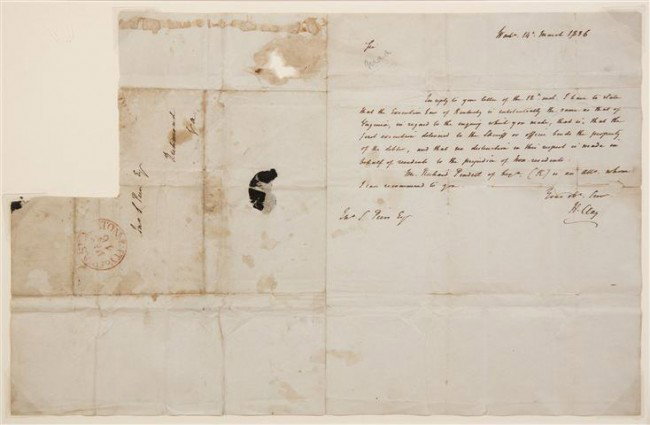 Washn. 14h. March 1836
Sir
In reply to your letter of the 12h. inst. I have to state
that the Execution law of Kentucky is substantially the same as that of
Virginia, in regard to the enquiry which you make, that is, that the
first execution delivered to the Sheriff or officer binds the property
of the debtor, and that no distinction in this respect is made in
behalf of residents to the prejudice of non residents.
Mr. Richard Pindell of Lexn. (K.) is an atto. whom
I can recommend to you
Your ob. Serv
H. Clay
Jno. S. Esq
Jno. S. Esq
Richmond
Va.